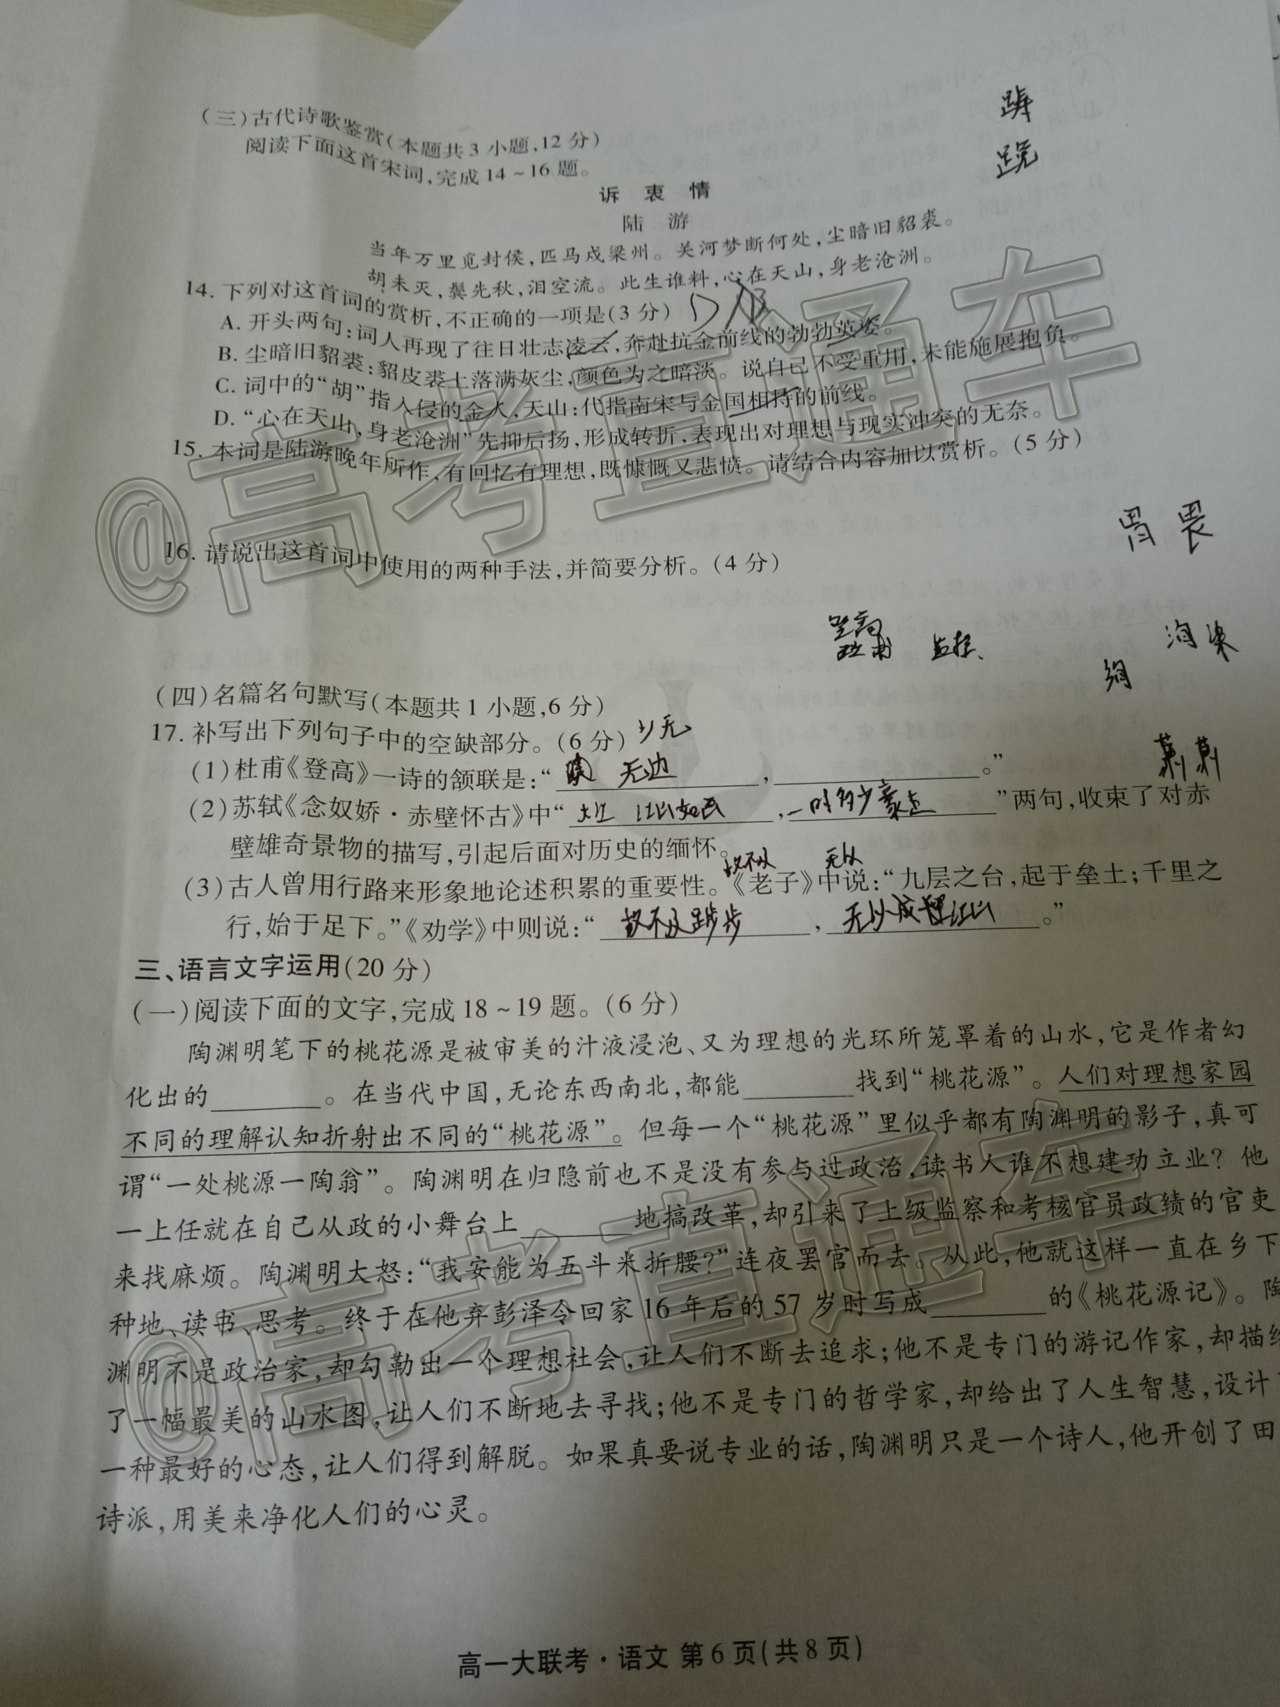 (三)古代诗歌鉴赏(本题共3小题,12分)
阅读下面这首宋词,完成14~16题。
诉衷情
陆游
当年万里觅封侯,匹马戍梁州。关河梦断何处,尘暗旧貂裘。
胡未灭,鬓先秋,泪空流。此生谁料,心在天山,身老沧洲。
14. 下列对这首词的赏析,不正确的一项是(3分) D
A. 开头两句:词人再现了往日壮志凌云,奔赴抗金前线的勃勃英姿。
B. 尘暗旧貂裘:貂皮裘上落满灰尘,颜色为之暗淡。说自己不受重用,未能施展抱负。
C. 词中的“胡”指入侵的金人,天山:代指南宋与金国相持的前线。
D. “心在天山,身老沧洲”先抑后扬,形成转折,表现出对理想与现实冲突的无奈。
15. 本词是陆游晚年所作,有回忆有理想,既慷慨又悲愤。请结合内容加以赏析。(5分)
胃 畏
16. 请说出这首词中使用的两种手法,并简要分析。(4分)
登高
(四)名篇名句默写(本题共1小题,6分)
17. 补写出下列句子中的空缺部分。(6分)
(1)杜甫《登高》一诗的颔联是:“ 无边 , 。” 萧萧
(2)苏轼《念奴娇·赤壁怀古》中“ 江山如画 ,一时多少豪杰 ”两句,收束了对赤
壁雄奇景物的描写,引起后面对历史的缅怀。
故不以 无以
(3)古人曾用行路来形象地论述积累的重要性。《老子》中说:“九层之台,起于垒土;千里之
行,始于足下。”《劝学》中则说:“ 故不以 , 无以成 。”
三、语言文字运用(20分)
(一)阅读下面的文字,完成18~19题。(6分)
陶渊明笔下的桃花源是被审美的汁液浸泡、又为理想的光环所笼罩着的山水,它是作者幻
化出的________。在当代中国,无论东西南北,都能________找到“桃花源”。人们对理想家园
不同的理解认知折射出不同的“桃花源”。但每一个“桃花源”里似乎都有陶渊明的影子,真可
谓“一处桃源一陶翁”。陶渊明在归隐前也不是没有参与过政治,读书人谁不想建功立业?他
一上任就在自己从政的小舞台上________地搞改革,却引来了上级监察和考核官员政绩的官吏
来找麻烦。陶渊明大怒:“我安能为五斗米折腰?”连夜罢官而去。从此,他就这样一直在乡下
种地、读书、思考。终于在他弃彭泽令回家16年后的57岁时写成________的《桃花源记》。陶
渊明不是政治家,却勾勒出一个理想社会,让人们不断去追求;他不是专门的游记作家,却描绘
了一幅最美的山水图,让人们不断地去寻找;他不是专门的哲学家,却给出了人生智慧,设计
一种最好的心态,让人们得到解脱。如果真要说专业的话,陶渊明只是一个诗人,他开创了田
诗派,用美来净化人们的心灵。
高一大联考·语文 第6页(共8页)
@高考直通车
@高考直通车